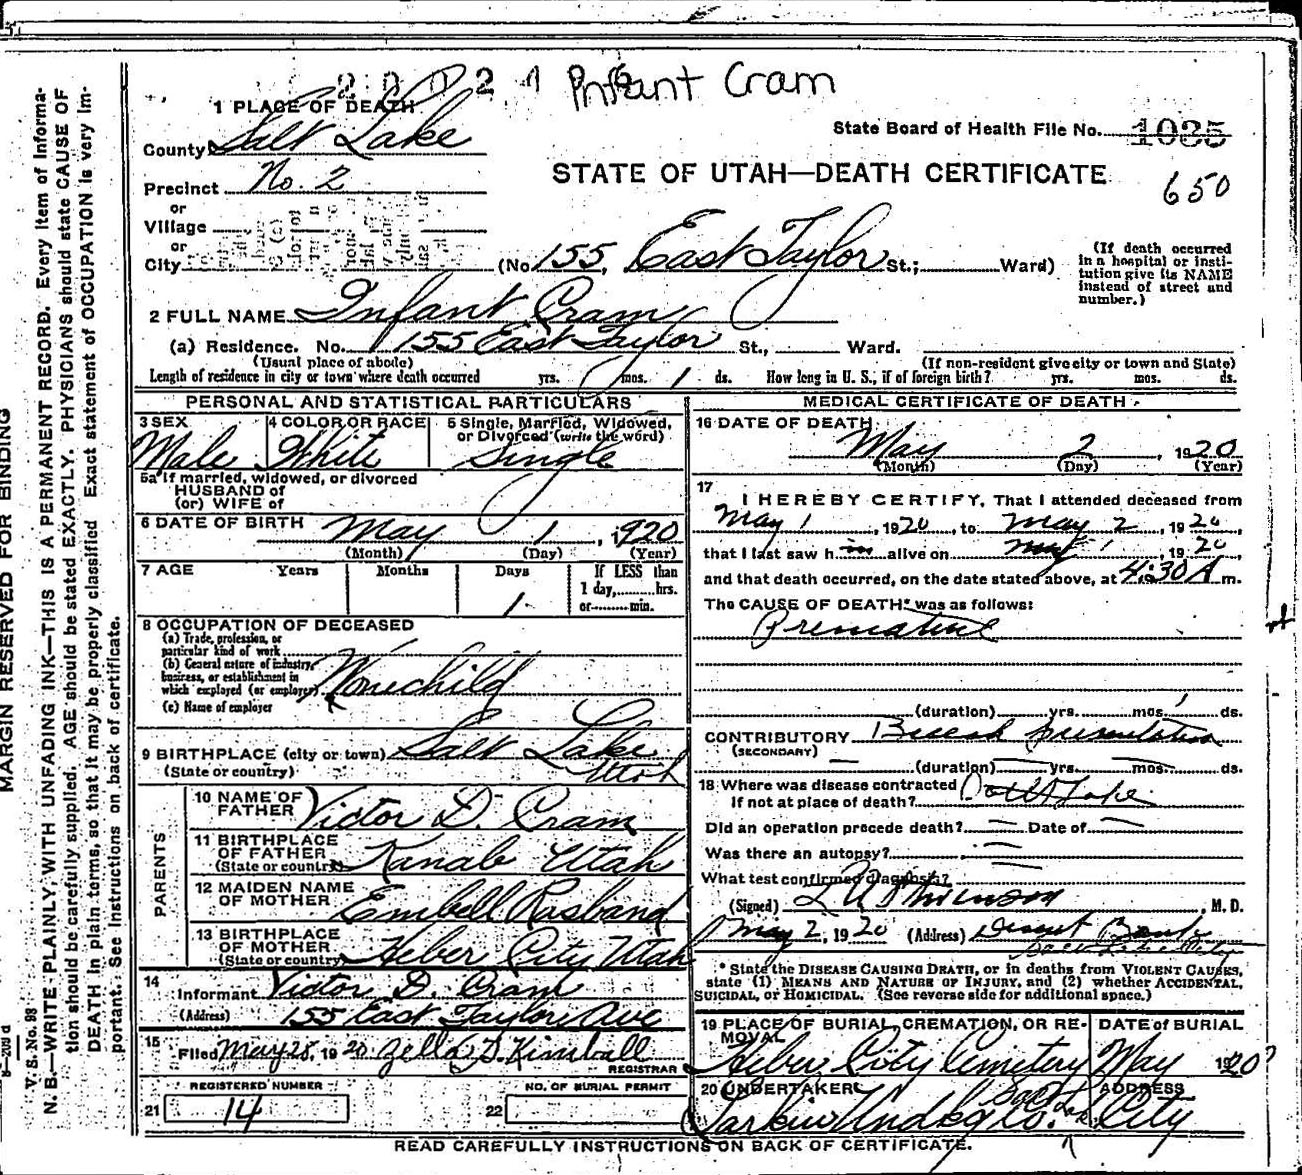 Infant Cram
1 PLACE OF DEATH
County Salt Lake
State Board of Health File No. 1025
Precinct No. 2
STATE OF UTAH—DEATH CERTIFICATE
650
or
Village
or
City (No 155, East Taylor St.; Ward)
(If death occurred in a hospital or insti-
tution give its NAME
instead of street and
number.)
2 FULL NAME Infant Cram
(a) Residence. No. 155 East Taylor St., Ward.
(Usual place of abode) (If non-resident give city or town and State)
Length of residence in city or town where death occurred yrs. mos. 1 ds. How long in U. S., if of foreign birth? yrs. mos. ds.
PERSONAL AND STATISTICAL PARTICULARS
3 SEX
Male
4 COLOR OR RACE
White
5 Single, Married, Widowed,
or Divorced (write the word)
Single
5a If married, widowed, or divorced
HUSBAND of
(or) WIFE of
6 DATE OF BIRTH May 1, 1920
(Month) (Day) (Year)
7 AGE Years Months Days If LESS than
1 day, hrs.
1 or min.
8 OCCUPATION OF DECEASED
(a) Trade, profession, or
particular kind of work
(b) General nature of industry,
business, or establishment in
which employed (or employer) None child
(c) Name of employer
9 BIRTHPLACE (city or town) Salt Lake
(State or country) Utah
PARENTS
10 NAME OF
FATHER Victor D. Cram
11 BIRTHPLACE
OF FATHER
(State or country) Kanab Utah
12 MAIDEN NAME
OF MOTHER Embell Rasband
13 BIRTHPLACE
OF MOTHER
(State or country) Heber City Utah
14
Informant Victor D. Cram
(Address) 155 East Taylor Ave
15 Filed May 28, 1920 Zella S. Kimball
REGISTRAR
REGISTERED NUMBER NO. OF BURIAL PERMIT
21 14 22
MEDICAL CERTIFICATE OF DEATH
16 DATE OF DEATH
May 2, 1920
(Month) (Day) (Year)
17
I HEREBY CERTIFY, That I attended deceased from
May 1, 1920, to May 2, 1920,
that I last saw h im alive on May 1, 1920
and that death occurred, on the date stated above, at 4:30 A m.
The CAUSE OF DEATH* was as follows:
Premature
(duration) yrs. mos. 1 ds.
CONTRIBUTORY Breech presentation
(SECONDARY)
(duration) yrs. mos. ds.
18 Where was disease contracted
If not at place of death? Salt Lake
Did an operation precede death? — Date of —
Was there an autopsy? —
What test confirmed diagnosis?
(Signed) M. D.
May 2, 1920 (Address) Deseret Bank
Salt Lake City
* State the DISEASE CAUSING DEATH, or in deaths from VIOLENT CAUSES,
state (1) MEANS AND NATURE OF INJURY, and (2) whether ACCIDENTAL,
SUICIDAL, or HOMICIDAL. (See reverse side for additional space.)
19 PLACE OF BURIAL, CREMATION, OR RE-
MOVAL
Heber City Cemetery
DATE of BURIAL
May 1920?
20 UNDERTAKER
Larkin Undkg Co.
ADDRESS
Salt Lake City
READ CAREFULLY INSTRUCTIONS ON BACK OF CERTIFICATE.
MARGIN RESERVED FOR BINDING
V. S. No. 98
N. B.—WRITE PLAINLY, WITH UNFADING INK—THIS IS A PERMANENT RECORD. Every item of informa-
tion should be carefully supplied. AGE should be stated EXACTLY. PHYSICIANS should state CAUSE OF
DEATH in plain terms, so that it may be properly classified. Exact statement of OCCUPATION is very im-
portant. See instructions on back of certificate.